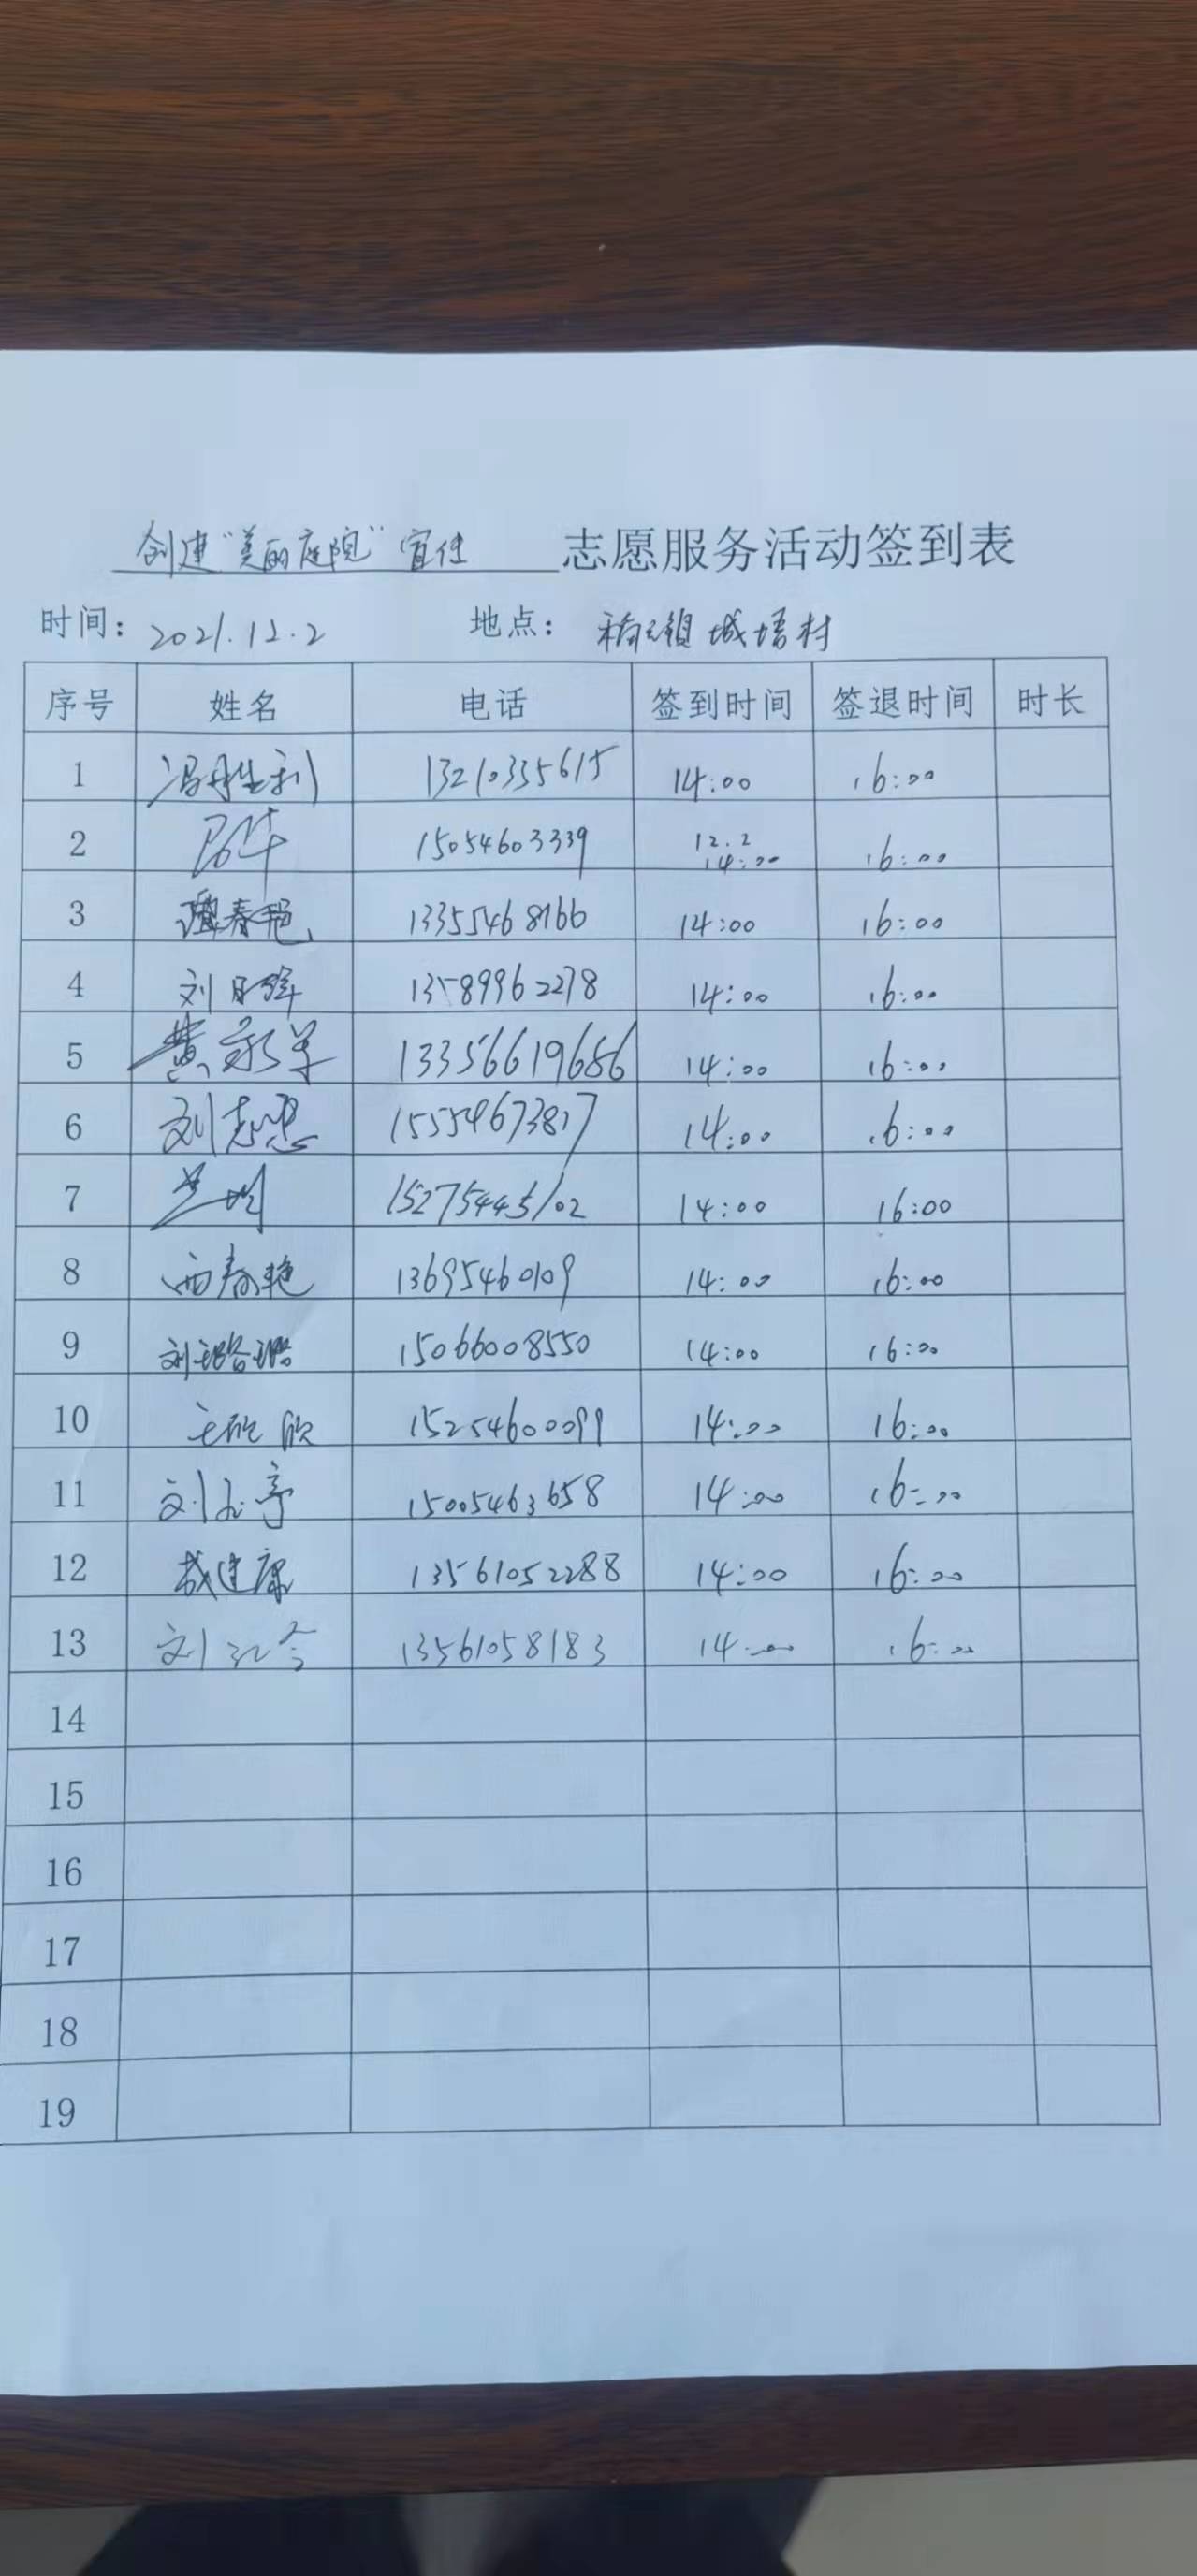 创建"美丽庭院"宣传 志愿服务活动签到表
时间: 2021.12.2 地点: 稻庄镇 城培村
序号 姓名 电话 签到时间 签退时间 时长
1 冯胜利 13210335615 14:00 16:00
2 15054603339 12.2 14:00 16:00
3 谭春艳 13355468166 14:00 16:00
4 刘日辉 13589962278 14:00 16:00
5 黄永华 13356619686 14:00 16:00
6 刘志忠 15554673817 14:00 16:00
7 15275445102 14:00 16:00
8 西春艳 13695460109 14:00 16:00
9 刘璐璐 15066008550 14:00 16:00
10 王欣欣 15254600099 14:00 16:00
11 刘 亭 15005463658 14:00 16:00
12 建康 13561052288 14:00 16:00
13 刘 13561058183 14:00 16:00
14
15
16
17
18
19